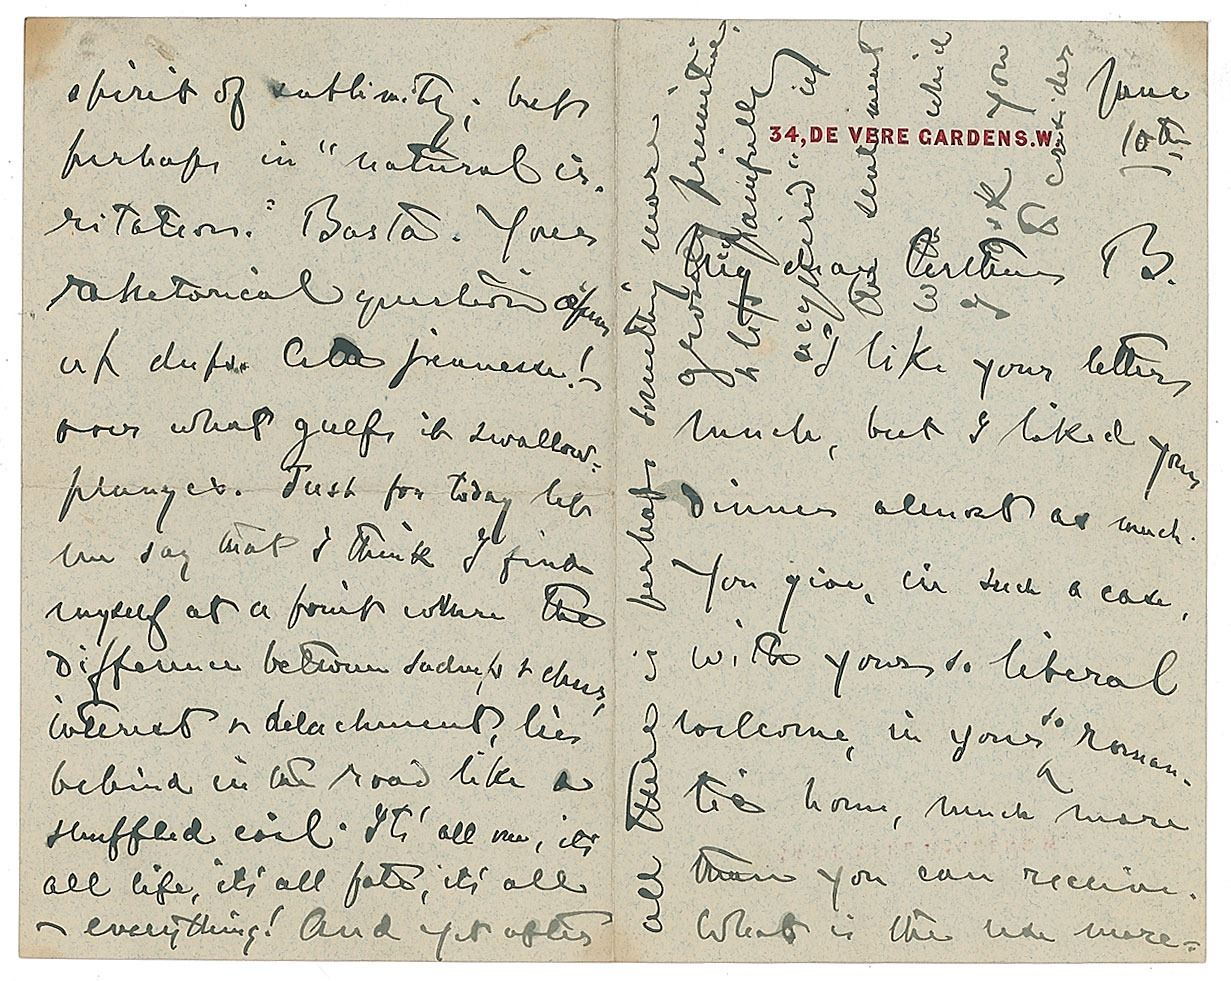 34, DE VERE GARDENS. W.
June
10th
My dear Arthur B.
I like your letters
much, but I liked your
dinner almost as much.
You give, in such a case,
with your so liberal
welcome, in your so roman-
tic home, much more
than you can receive.
What is the use more=
spirit of sublimity; but
perhaps in "natural ir-
ritation." Basta. Your
rhetorical question opens
up deeps. Cara jeunesse!
over what gulfs it swallow-
plunges. Just for today let
me say that I think I find
myself at a point where the
difference between sadness & cheer,
interest & detachment, lies
behind in the road like a
shuffled coil. It's all one, it's
all life, it's all fate, it's all
— everything! And yet after
all there is perhaps something more
grossly primitive
& less painfully
acquired" in
the sentiment
with which
I ask you
to consider